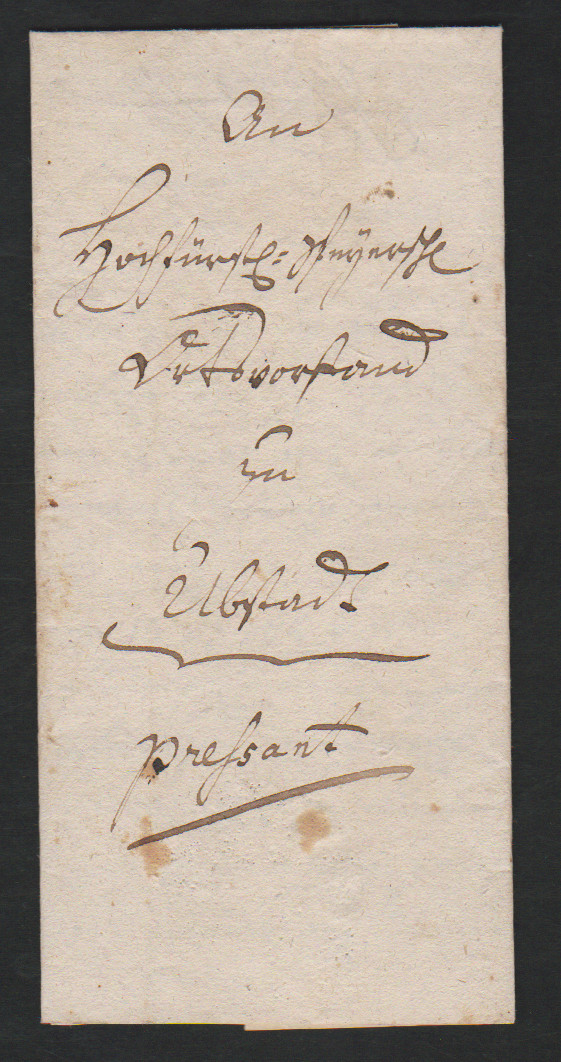 An
Hochfürstl: Speyersch
Ortsvorstand
zu
Ubstadt
pressant